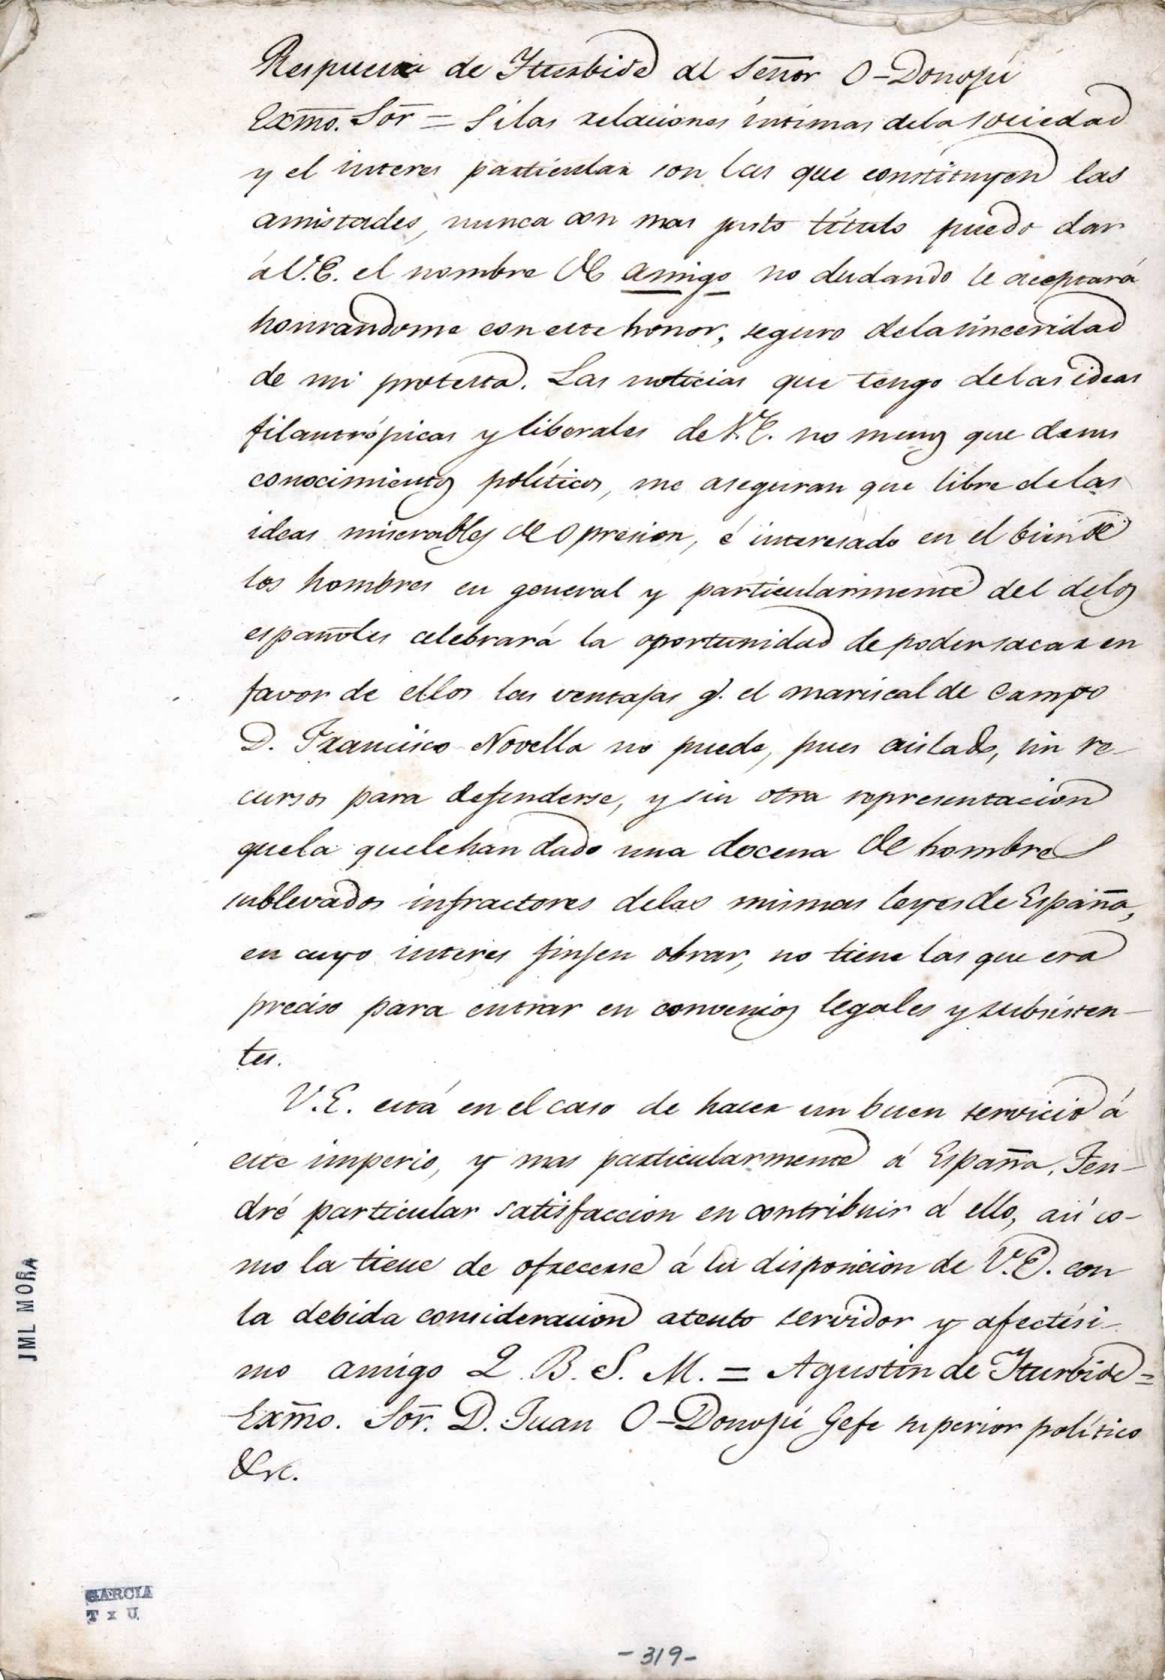 Respuesta de Iturbide al Señor O-Donojú
Exmo. Sor = Si las relaciones íntimas de la sociedad
y el interes particular son las que constituyen las
amistades, nunca con mas justo título puedo dar
á V.E. el nombre de amigo no dudando le aceptará
honrandome con este honor, seguro de la sinceridad
de mi protesta. Las noticias que tengo de las ideas
filantrópicas y liberales de V.E. no menos que de sus
conocimientos políticos, me aseguran que libre de las
ideas miserables de opresion, é interesado en el bien de
los hombres en general y particularmente del de los
españoles celebrará la oportunidad de poder sacar en
favor de ellos las ventajas q. el mariscal de Campo
D. Francisco Novella no puede, pues aislado, sin re-
cursos para defenderse, y sin otra representacion
que la que le han dado una docena de hombres
sublevados infractores de las mismas leyes de España,
en cuyo interes finjen obrar, no tiene las que era
preciso para entrar en convenios legales y subsisten-
tes.
V.E. está en el caso de hacer un buen servicio á
este imperio, y mas particularmente á España. Ten-
dré particular satisfaccion en contribuir á ello, así co-
mo la tiene de ofrecerse á la disposicion de V.E. con
la debida consideracion atento servidor y afectísi-
mo amigo Q. B. S. M. = Agustin de Iturbide =
Exmo. Sor. D. Juan O-Donojú Gefe superior político
&c.
JML MORA
GARCIA
T x U
-319-